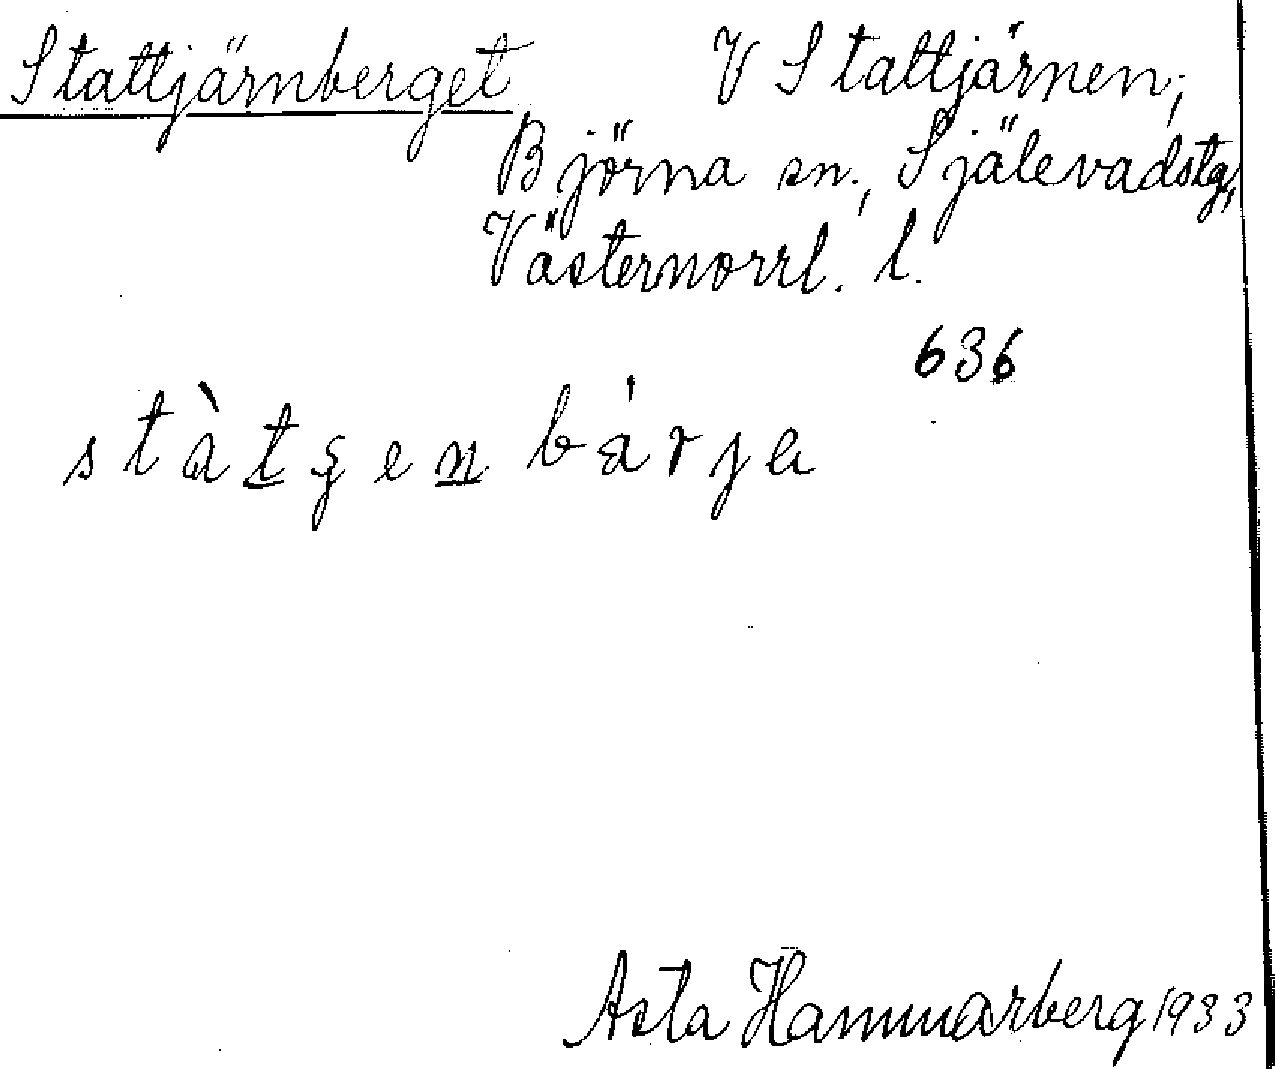 Stattjärnberget V Stattjärnen;
Björna sn., Själevadstg,
Västernorrl. l.
636
stàtʂen bárje
Asta Hammarberg 1933